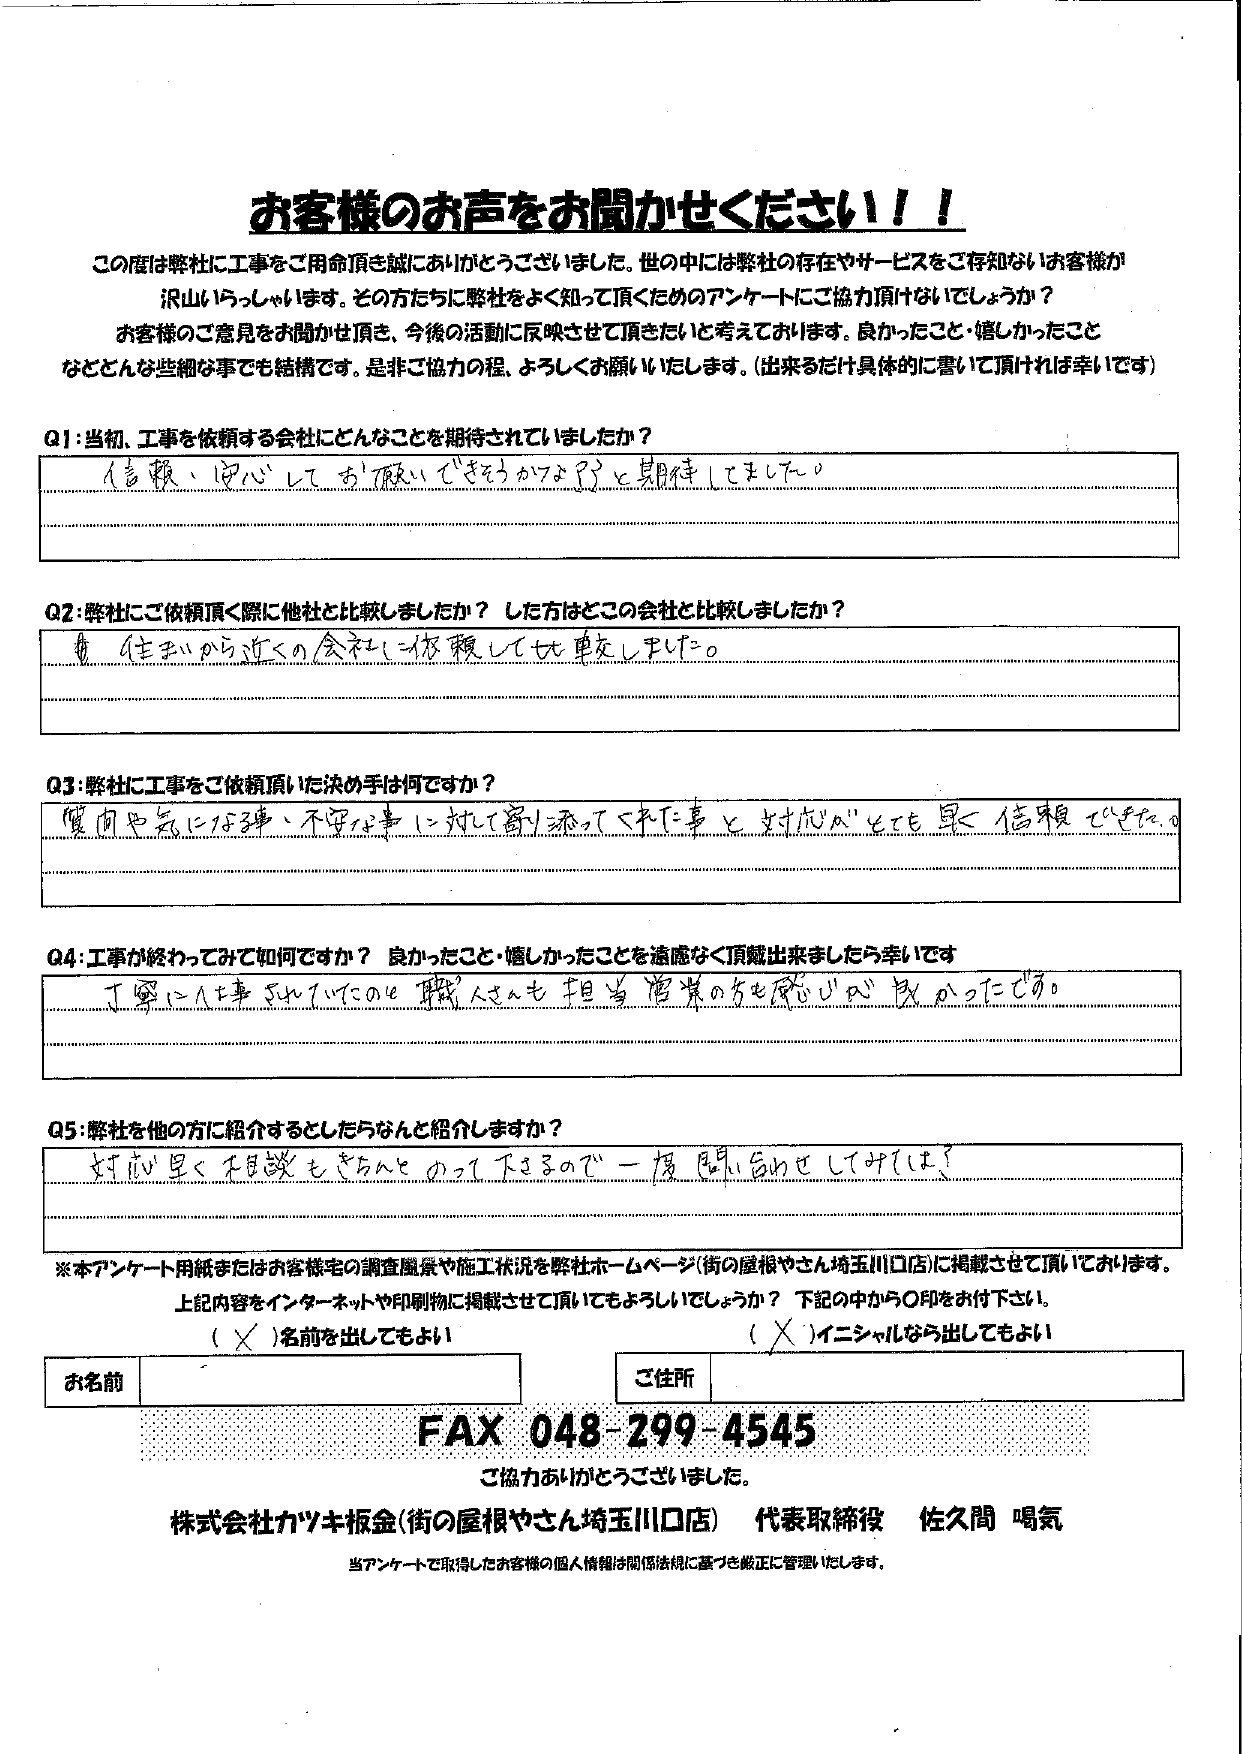 お客様のお声をお聞かせください！！
この度は弊社に工事をご用命頂き誠にありがとうございました。世の中には弊社の存在やサービスをご存知ないお客様が
沢山いらっしゃいます。その方たちに弊社をよく知って頂くためのアンケートにご協力頂けないでしょうか？
お客様のご意見をお聞かせ頂き、今後の活動に反映させて頂きたいと考えております。良かったこと・嬉しかったこと
などどんな些細な事でも結構です。是非ご協力の程、よろしくお願いいたします。（出来るだけ具体的に書いて頂ければ幸いです）
Q1：当初、工事を依頼する会社にどんなことを期待されていましたか？
信頼、安心してお願いできそうかな??と期待してました。
Q2：弊社にご依頼頂く際に他社と比較しましたか？ した方はどこの会社と比較しましたか？
住まいから近くの会社に依頼して比較しました。
Q3：弊社に工事をご依頼頂いた決め手は何ですか？
質問や気になる事、不安な事に対して寄り添ってくれた事と対応がとても早く信頼できた。
Q4：工事が終わってみて如何ですか？ 良かったこと・嬉しかったことを遠慮なく頂戴出来ましたら幸いです
丁寧に仕事されていたのと職人さんも担当営業の方も感じが良かったです。
Q5：弊社を他の方に紹介するとしたらなんと紹介しますか？
対応早く相談もきちんとのって下さるので一度問い合わせしてみては？
※本アンケート用紙またはお客様宅の調査風景や施工状況を弊社ホームページ（街の屋根やさん埼玉川口店）に掲載させて頂いております。
上記内容をインターネットや印刷物に掲載させて頂いてもよろしいでしょうか？ 下記の中から〇印をお付下さい。
（ X ）名前を出してもよい （ X ）イニシャルなら出してもよい
お名前 ご住所
FAX 048-299-4545
ご協力ありがとうございました。
株式会社カツキ板金（街の屋根やさん埼玉川口店） 代表取締役 佐久間 喝気
当アンケートで取得したお客様の個人情報は関係法規に基づき厳正に管理いたします。